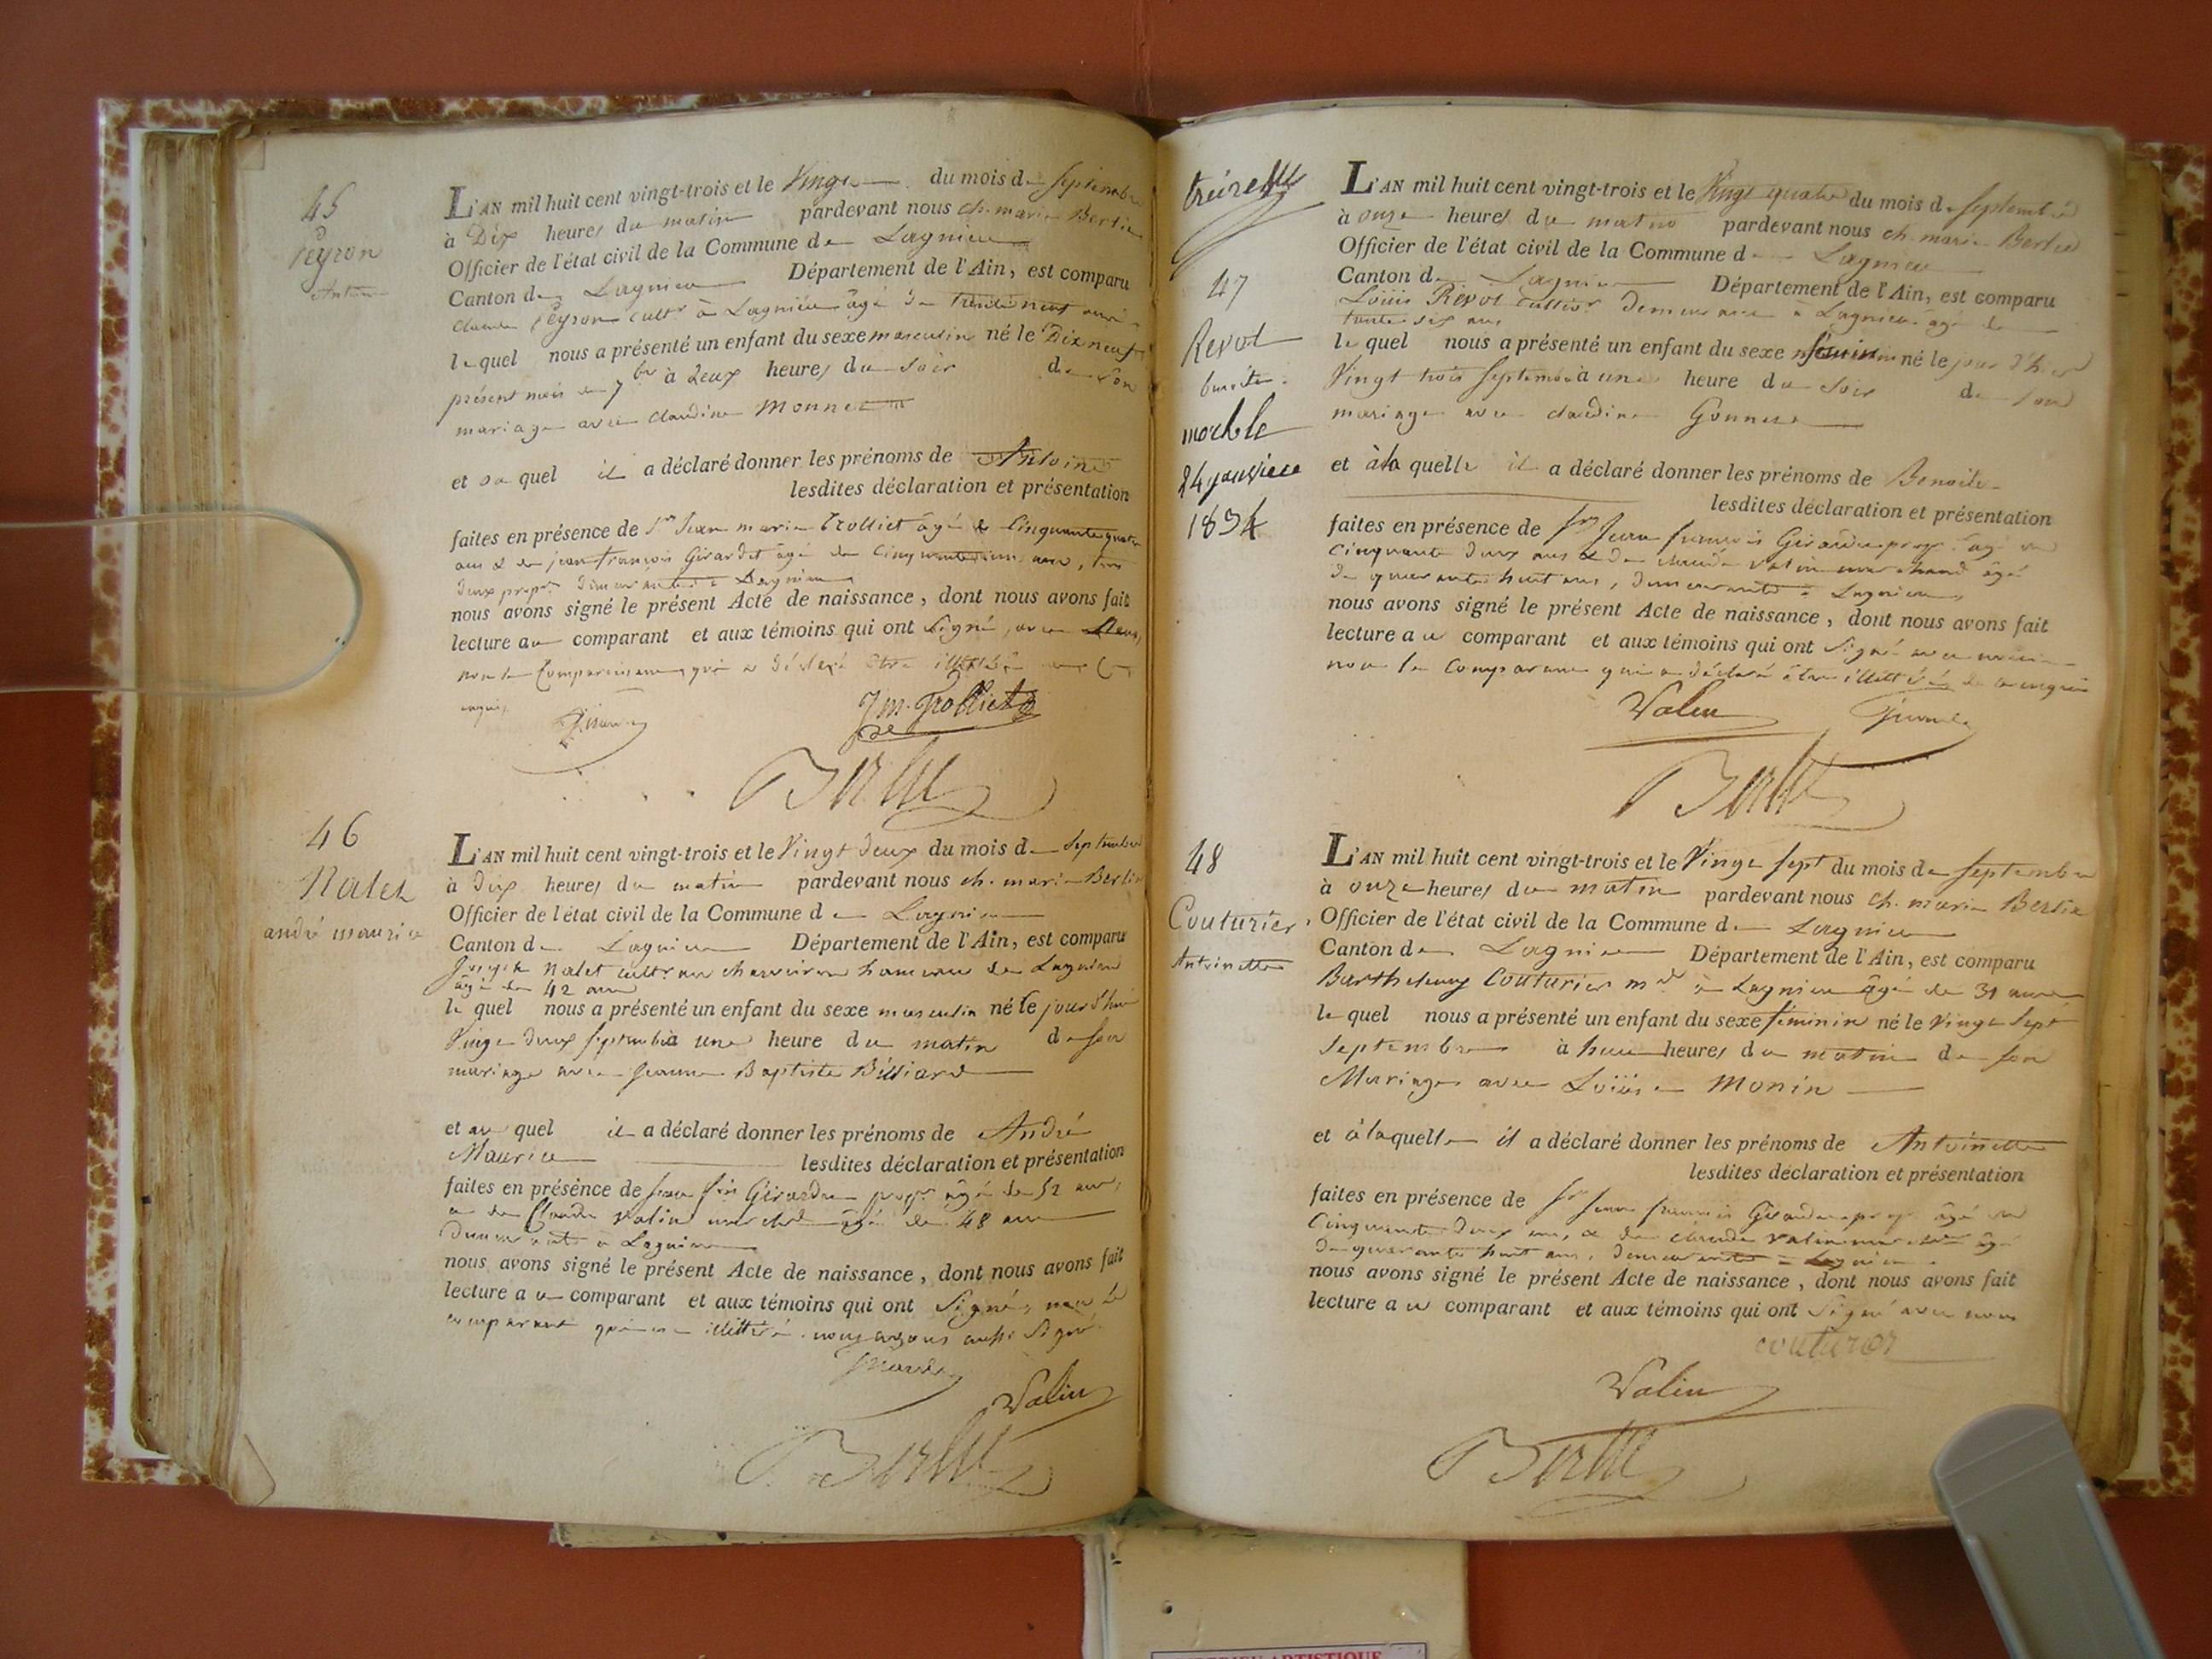 45
Peyron
Antoine
L'AN mil huit cent vingt-trois et le Vingt du mois de Septembre
à Dix heures du matin pardevant nous ch. marie Berlie
Officier de l'état civil de la Commune de Lagnieu
Canton de Lagnieu Département de l'Ain, est comparu
claude Peyron cultr à Lagnieu âgé de trente neuf ans
lequel nous a présenté un enfant du sexe masculin né le Dix neuf
présent mois de 7bre à deux heures du soir de son
mariage avec claudine Monnet
et au quel il a déclaré donner les prénoms de Antoine
lesdites déclaration et présentation
faites en présence de Sr Jean marie Trolliet âgé de Cinquante quatre
ans & de jean françois Girardet âgé de Cinquante ans, tous
deux propr. demeurants à Lagnieu
nous avons signé le présent Acte de naissance, dont nous avons fait
lecture au comparant et aux témoins qui ont signé, avec nous,
non le Comparant qui a déclaré être illettré de ce
enquis
Jm. Trolliet
Berlie
46
Nalet
andré maurice
L'AN mil huit cent vingt-trois et le Vingt deux du mois de Septembre
à dix heures du matin pardevant nous ch. marie Berlie
Officier de l'état civil de la Commune de Lagnieu
Canton de Lagnieu Département de l'Ain, est comparu
Joseph Nalet cultr au hameau de Lagnieu
âgé de 42 ans
lequel nous a présenté un enfant du sexe masculin né le jourd'hui
Vingt deux septembre à une heure du matin de son
mariage avec Jeanne Baptiste Billiard
et au quel il a déclaré donner les prénoms de André
Maurice lesdites déclaration et présentation
faites en présence de jean fçois Girardet propr. âgé de 52 ans,
et de Claude Valin marchd âgé de 48 ans
demeurants à Lagnieu
nous avons signé le présent Acte de naissance, dont nous avons fait
lecture au comparant et aux témoins qui ont Signé, non le
comparant illettré. nous avons aussi signé
Valin
Berlie
47
Revol
benoite
morte le
24 janvier
1834
L'AN mil huit cent vingt-trois et le Vingt quatre du mois de Septembre
à onze heures du matin pardevant nous ch. marie Berlie
Officier de l'état civil de la Commune de Lagnieu
Canton de Lagnieu Département de l'Ain, est comparu
Loüis Revol cultivr demeurant à Lagnieu âgé de
trente six ans
lequel nous a présenté un enfant du sexe féminin né le jour d'hier
Vingt trois Septembre à une heure du soir de son
mariage avec claudine Gonnet
et à la quelle il a déclaré donner les prénoms de Benoite
lesdites déclaration et présentation
faites en présence de Sr Jean françois Girardet propr. âgé de
cinquante deux ans & de claude Valin marchand âgé
de quarante huit ans, demeurants à Lagnieu,
nous avons signé le présent Acte de naissance, dont nous avons fait
lecture au comparant et aux témoins qui ont Signé avec nous
non le comparant qui a déclaré être illettré de ce enquis
Valin
Berlie
48
Couturier
Antoinette
L'AN mil huit cent vingt-trois et le Vingt Sept du mois de Septembre
à onze heures du matin pardevant nous ch. marie Berlie
Officier de l'état civil de la Commune de Lagnieu
Canton de Lagnieu Département de l'Ain, est comparu
Barthelemy Couturier md à Lagnieu âgé de 31 ans
lequel nous a présenté un enfant du sexe féminin né le Vingt Sept
Septembre à heures du matin de son
Mariage avec Loüise Monin
et à laquelle il a déclaré donner les prénoms de Antoinette
lesdites déclaration et présentation
faites en présence de Sr Jean françois Girardet propr âgé de
Cinquante deux ans, & de claude Valin âgé
de quarante huit ans, demeurants à Lagnieu.
nous avons signé le présent Acte de naissance, dont nous avons fait
lecture au comparant et aux témoins qui ont Signé avec nous
couturier
Valin
Berlie